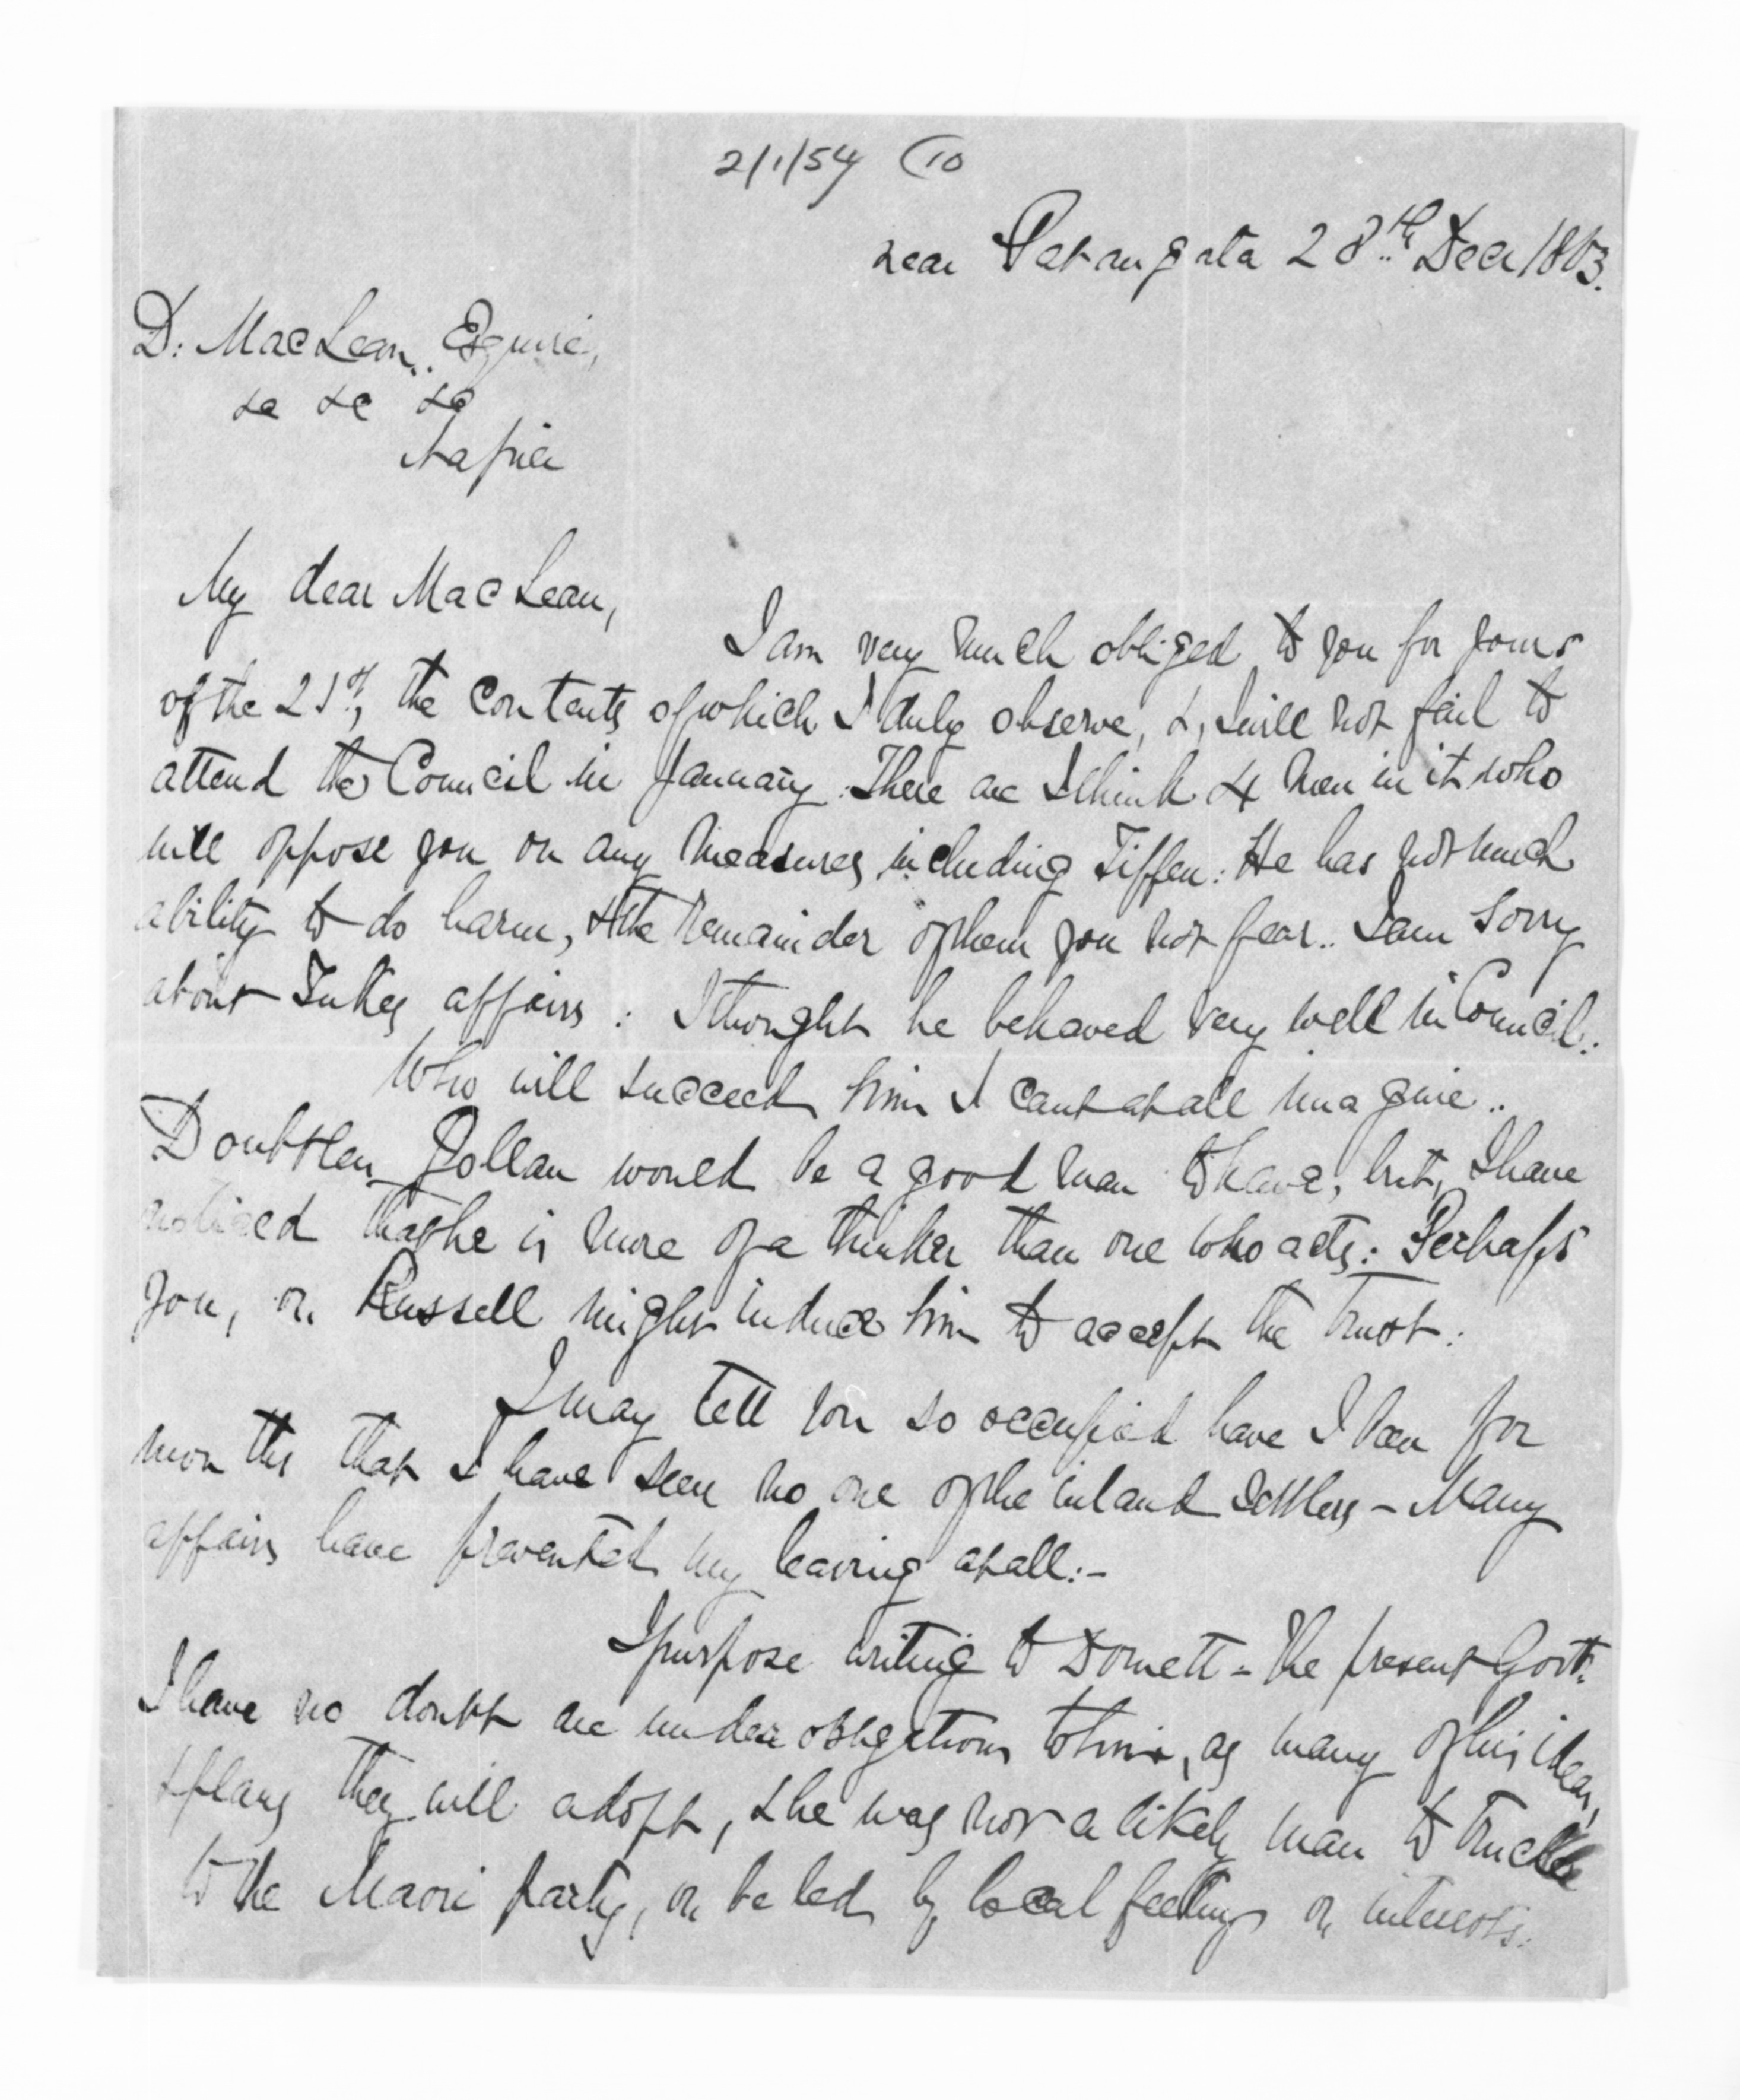 2/1/54 (10
near Patangata 28th Decr 1863.
D: MacLean. Esquire,
&c &c &c
Napier
My dear MacLean,
I am very much obliged to you for yours
of the 21st, the contents of which I duly observe, &, I will not fail to
attend the Council in January. There are I think 4 men in it who
will oppose you on any measures, including Tiffen: He has not much
ability to do harm, & the remainder of them you not fear.. I am sorry
about Tukes affairs: I thought he behaved very well in Council:
Who will succeed him I cant at all imagine..
Doubtless Gollan would be a good man to have, but, I have
noticed that he is more of a thinker than one who acts: Perhaps
you, or Russell might induce him to accept the trust:
I may tell you so occupied have I been for
months that I have seen no one of the inland settlers - Many
affairs have prevented my leaving at all:-
I purpose writing to Domett - The present Govt.
I have no doubt are under obligations to him, as many of his ideas,
& plans they will adopt, & he was not a likely man to truckle
to the Maori party, or be led by local feelings or interests: